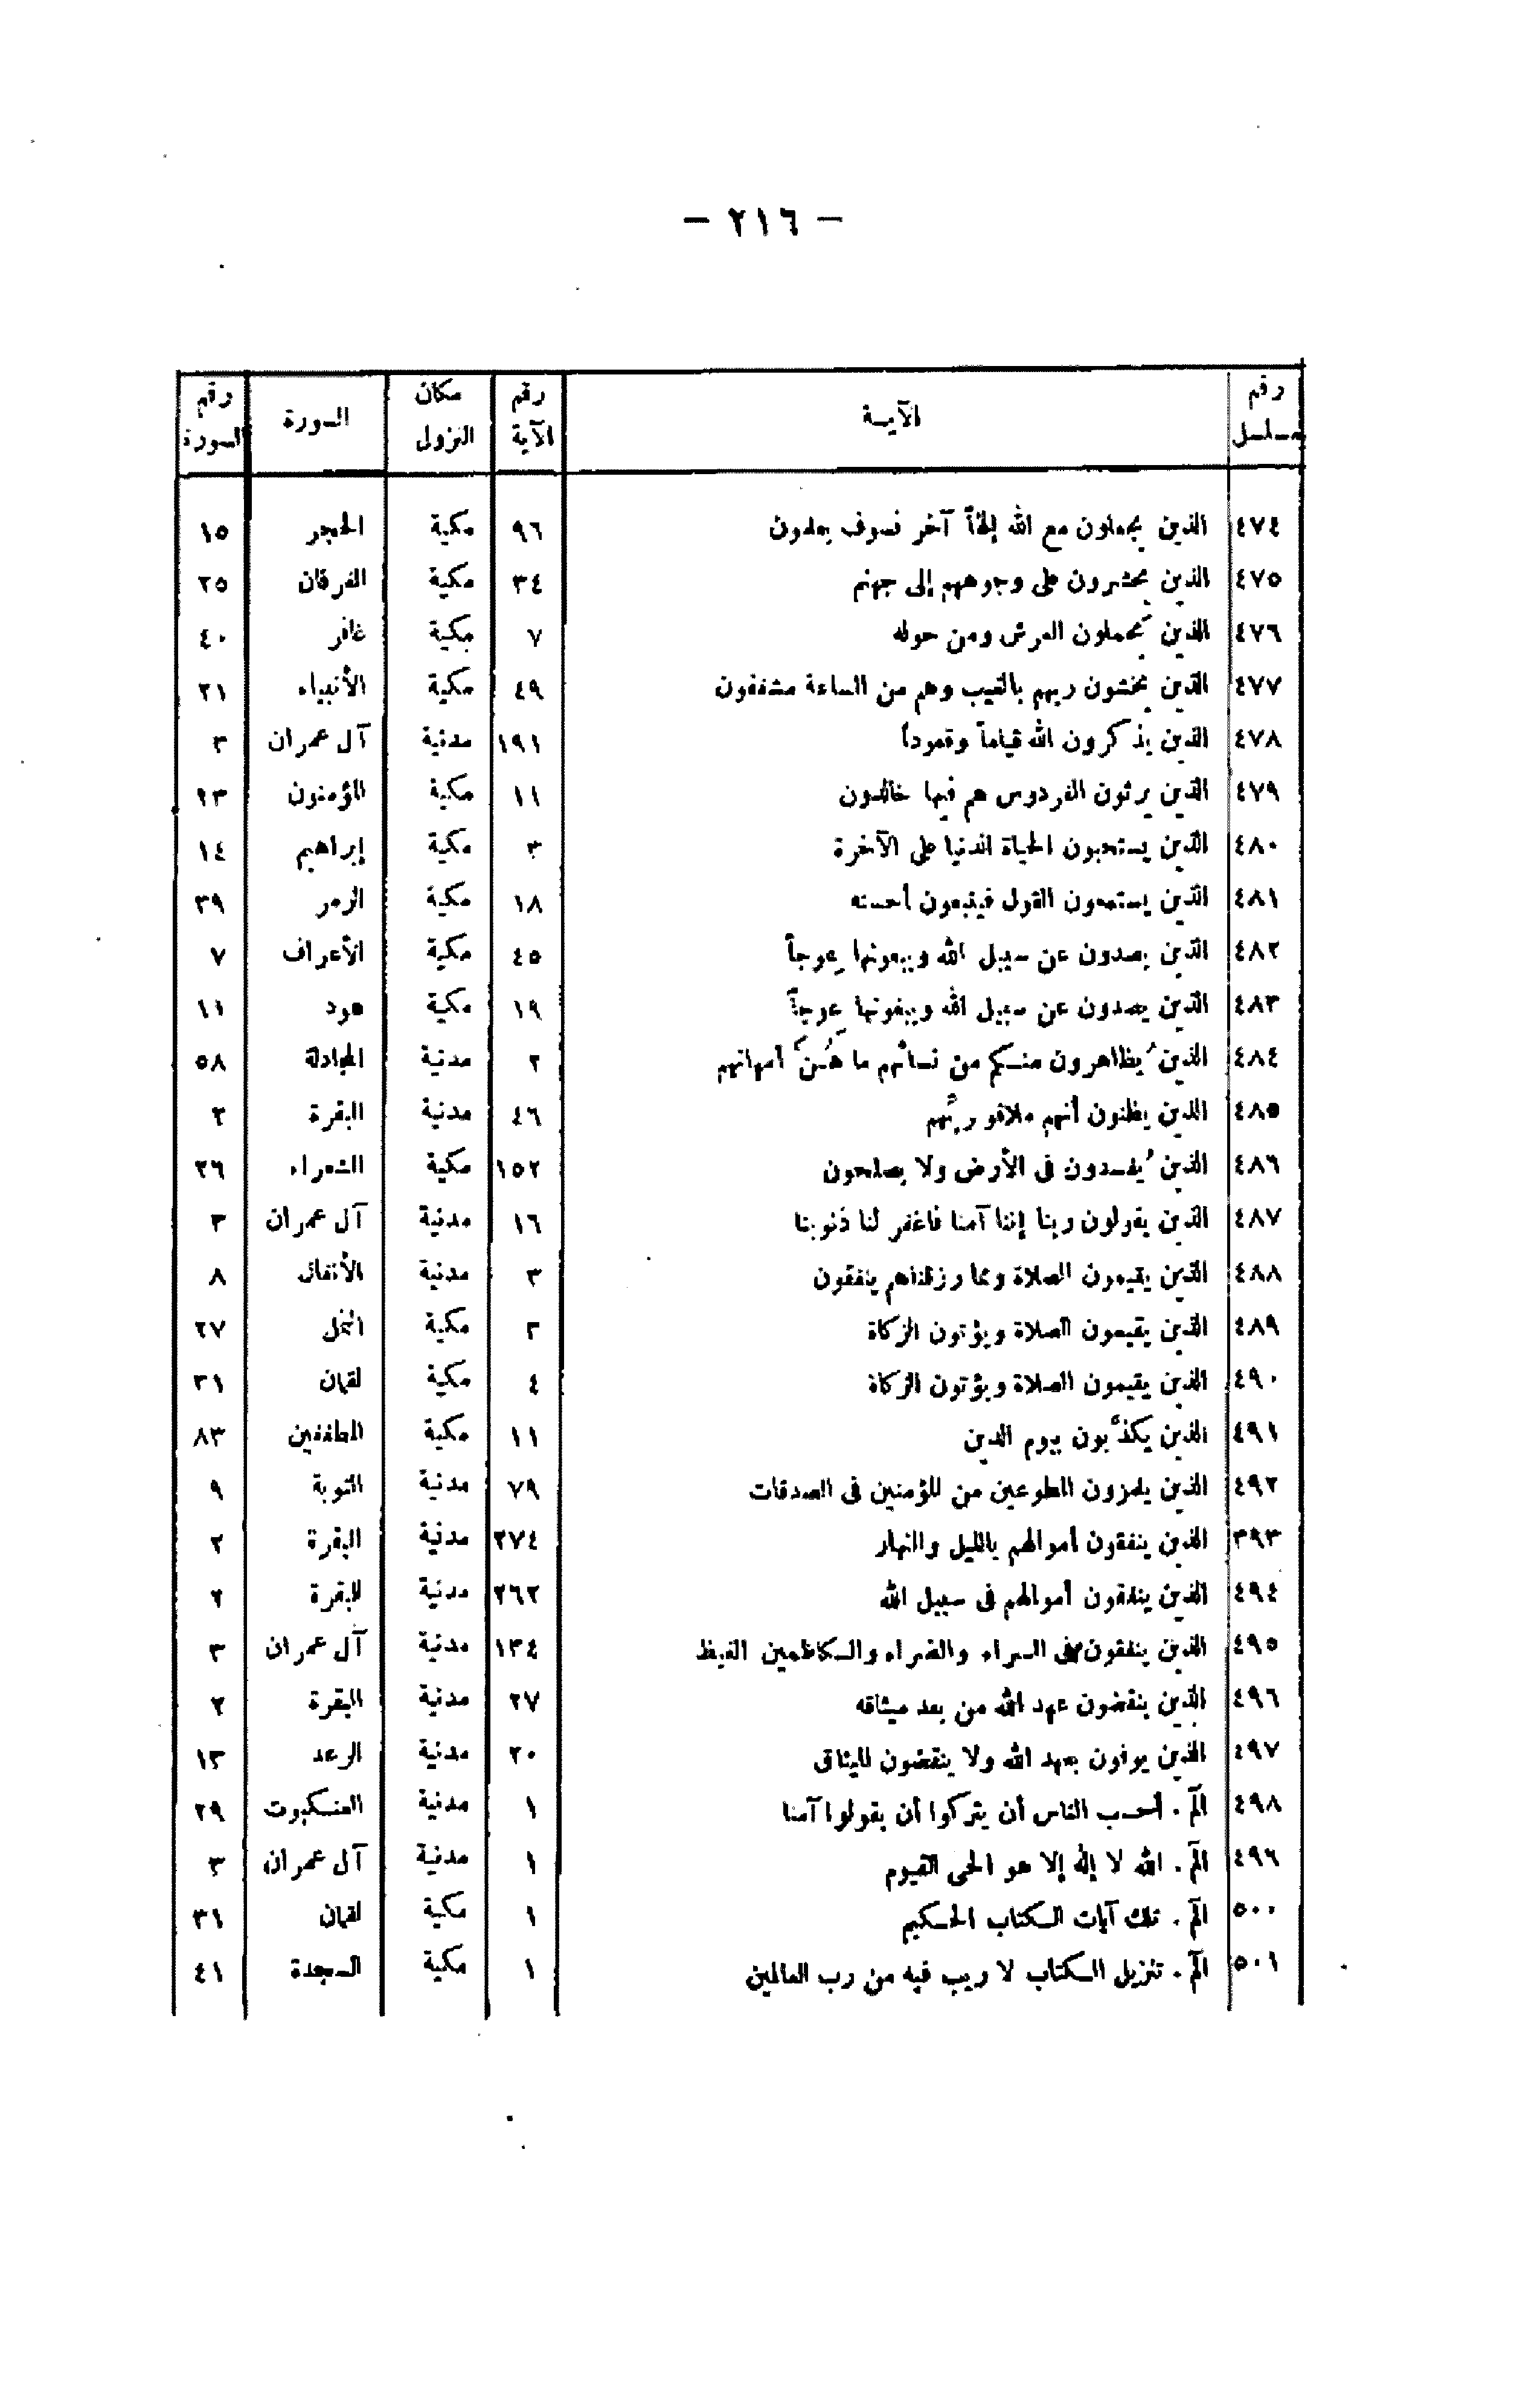 — ٢١٦ —
رقم مسلسل الآيـة رقم الآية مكان النزول السورة رقم السورة
٤٧٤ الذين يجعلون مع الله إلهًا آخر فسوف يعلمون ٩٦ مكية الحجر ١٥
٤٧٥ الذين يحشرون على وجوههم إلى جهنم ٣٤ مكية الفرقان ٢٥
٤٧٦ الذين يحملون العرش ومن حوله ٧ مكية غافر ٤٠
٤٧٧ الذين يخشون ربهم بالغيب وهم من الساعة مشفقون ٤٩ مكية الأنبياء ٢١
٤٧٨ الذين يذكرون الله قياماً وقعوداً ١٩١ مدنية آل عمران ٣
٤٧٩ الذين يرثون الفردوس هم فيها خالدون ١١ مكية المؤمنون ٢٣
٤٨٠ الذين يستحبون الحياة الدنيا على الآخرة ٣ مكية إبراهيم ١٤
٤٨١ الذين يستمعون القول فيتبعون أحسنه ١٨ مكية الزمر ٣٩
٤٨٢ الذين يصدون عن سبيل الله ويبغونها عِوجاً ٤٥ مكية الأعراف ٧
٤٨٣ الذين يصدون عن سبيل الله ويبغونها عوجاً ١٩ مكية هود ١١
٤٨٤ الذين يُظاهرون منكم من نسائهم ما هُنَّ أمهاتهم ٢ مدنية المجادلة ٥٨
٤٨٥ الذين يظنون أنهم ملاقو ربِّهم ٤٦ مدنية البقرة ٢
٤٨٦ الذين يُفسدون فى الأرض ولا يصلحون ١٥٢ مكية الشعراء ٢٦
٤٨٧ الذين يقولون ربنا إننا آمنا فاغفر لنا ذنوبنا ١٦ مدنية آل عمران ٣
٤٨٨ الذين يقيمون الصلاة ومما رزقناهم ينفقون ٣ مدنية الأنفال ٨
٤٨٩ الذين يقيمون الصلاة ويؤتون الزكاة ٣ مكية النمل ٢٧
٤٩٠ الذين يقيمون الصلاة ويؤتون الزكاة ٤ مكية لقمان ٣١
٤٩١ الذين يكذِّبون بيوم الدين ١١ مكية المطففين ٨٣
٤٩٢ الذين يلمزون المطوعين من المؤمنين فى الصدقات ٧٩ مدنية التوبة ٩
٣٩٣ الذين ينفقون أموالهم بالليل والنهار ٢٧٤ مدنية البقرة ٢
٤٩٤ الذين ينفقون أموالهم فى سبيل الله ٢٦٢ مدنية البقرة ٢
٤٩٥ الذين ينفقون فى السراء والضراء والكاظمين الغيظ ١٣٤ مدنية آل عمران ٣
٤٩٦ الذين ينقضون عهد الله من بعد ميثاقه ٢٧ مدنية البقرة ٢
٤٩٧ الذين يوفون بعهد الله ولا ينقضون الميثاق ٢٠ مدنية الرعد ١٣
٤٩٨ الٓمٓ . أحسب الناس أن يتركوا أن يقولوا آمنا ١ مدنية العنكبوت ٢٩
٤٩٦ الٓمٓ . الله لا إله إلا هو الحى القيوم ١ مدنية آل عمران ٣
٥٠٠ الٓمٓ . تلك آيات الكتاب الحكيم ١ مكية لقمان ٣١
٥٠١ الٓمٓ . تنزيل الكتاب لا ريب فيه من رب العالمين ١ مكية السجدة ٤١